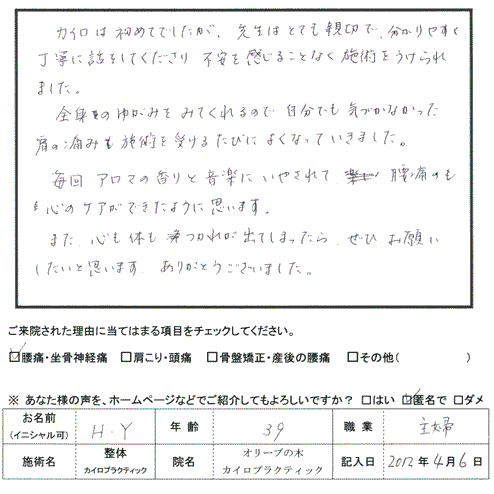 カイロは初めてでしたが、先生はとても親切で、分かりやすく
丁寧に話をしてくださり 不安を感じることなく施術をうけられ
ました。
全身のゆがみをみてくれるので自分でも気づかなかった
肩の痛みも施術を受けるたびによくなっていきました。
毎回 アロマの香りと音楽にいやされて 腰痛のも
心のケアができたように思います。
また、心も体も つかれが出てしまったら、ぜひ お願い
したいと思います。ありがとうございました。
ご来院された理由に当てはまる項目をチェックしてください。
☑腰痛・坐骨神経痛 □肩こり・頭痛 □骨盤矯正・産後の腰痛 □その他( )
※ あなた様の声を、ホームページなどでご紹介してもよろしいですか? □はい ☑匿名で □ダメ
お名前 (イニシャル可) H・Y 年齢 39 職業 主婦
施術名 整体 カイロプラクティック 院名 オリーブの木 カイロプラクティック 記入日 2012年4月6日